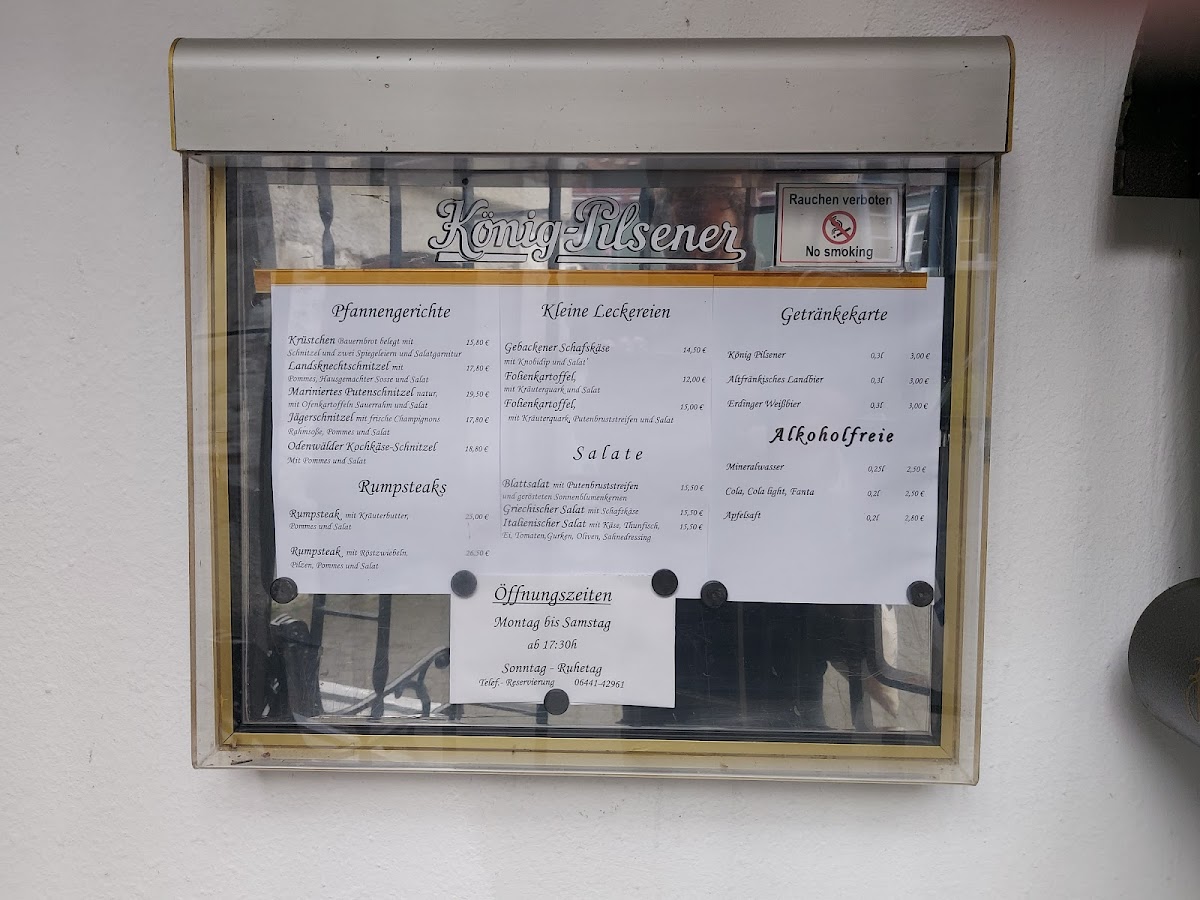 König-Pilsener
Rauchen verboten
No smoking
Pfannengerichte
Krüstchen Bauernbrot belegt mit 15,80 €
Schnitzel und zwei Spiegeleiern und Salatgarnitur
Landsknechtschnitzel mit 17,80 €
Pommes, Hausgemachter Sosse und Salat
Mariniertes Putenschnitzel natur, 19,50 €
mit Ofenkartoffeln Sauerrahm und Salat
Jägerschnitzel mit frische Champignons 17,80 €
Rahmsoße, Pommes und Salat
Odenwälder Kochkäse-Schnitzel 18,80 €
Mit Pommes und Salat
Rumpsteaks
Rumpsteak mit Kräuterbutter, 25,00 €
Pommes und Salat
Rumpsteak mit Röstzwiebeln, 26,50 €
Pilzen, Pommes und Salat
Kleine Leckereien
Gebackener Schafskäse 14,50 €
mit Knobidip und Salat
Folienkartoffel, 12,00 €
mit Kräuterquark und Salat
Folienkartoffel, 15,00 €
mit Kräuterquark, Putenbruststreifen und Salat
Salate
Blattsalat mit Putenbruststreifen 15,50 €
und gerösteten Sonnenblumenkernen
Griechischer Salat mit Schafskäse 15,50 €
Italienischer Salat mit Käse, Thunfisch, 15,50 €
Ei, Tomaten, Gurken, Oliven, Sahnedressing
Getränkekarte
König Pilsener 0,3l 3,00 €
Altfränkisches Landbier 0,3l 3,00 €
Erdinger Weißbier 0,3l 3,00 €
Alkoholfreie
Mineralwasser 0,25l 2,50 €
Cola, Cola light, Fanta 0,2l 2,50 €
Apfelsaft 0,2l 2,80 €
Öffnungszeiten
Montag bis Samstag
ab 17:30h
Sonntag - Ruhetag
Telef.- Reservierung 06441-42961